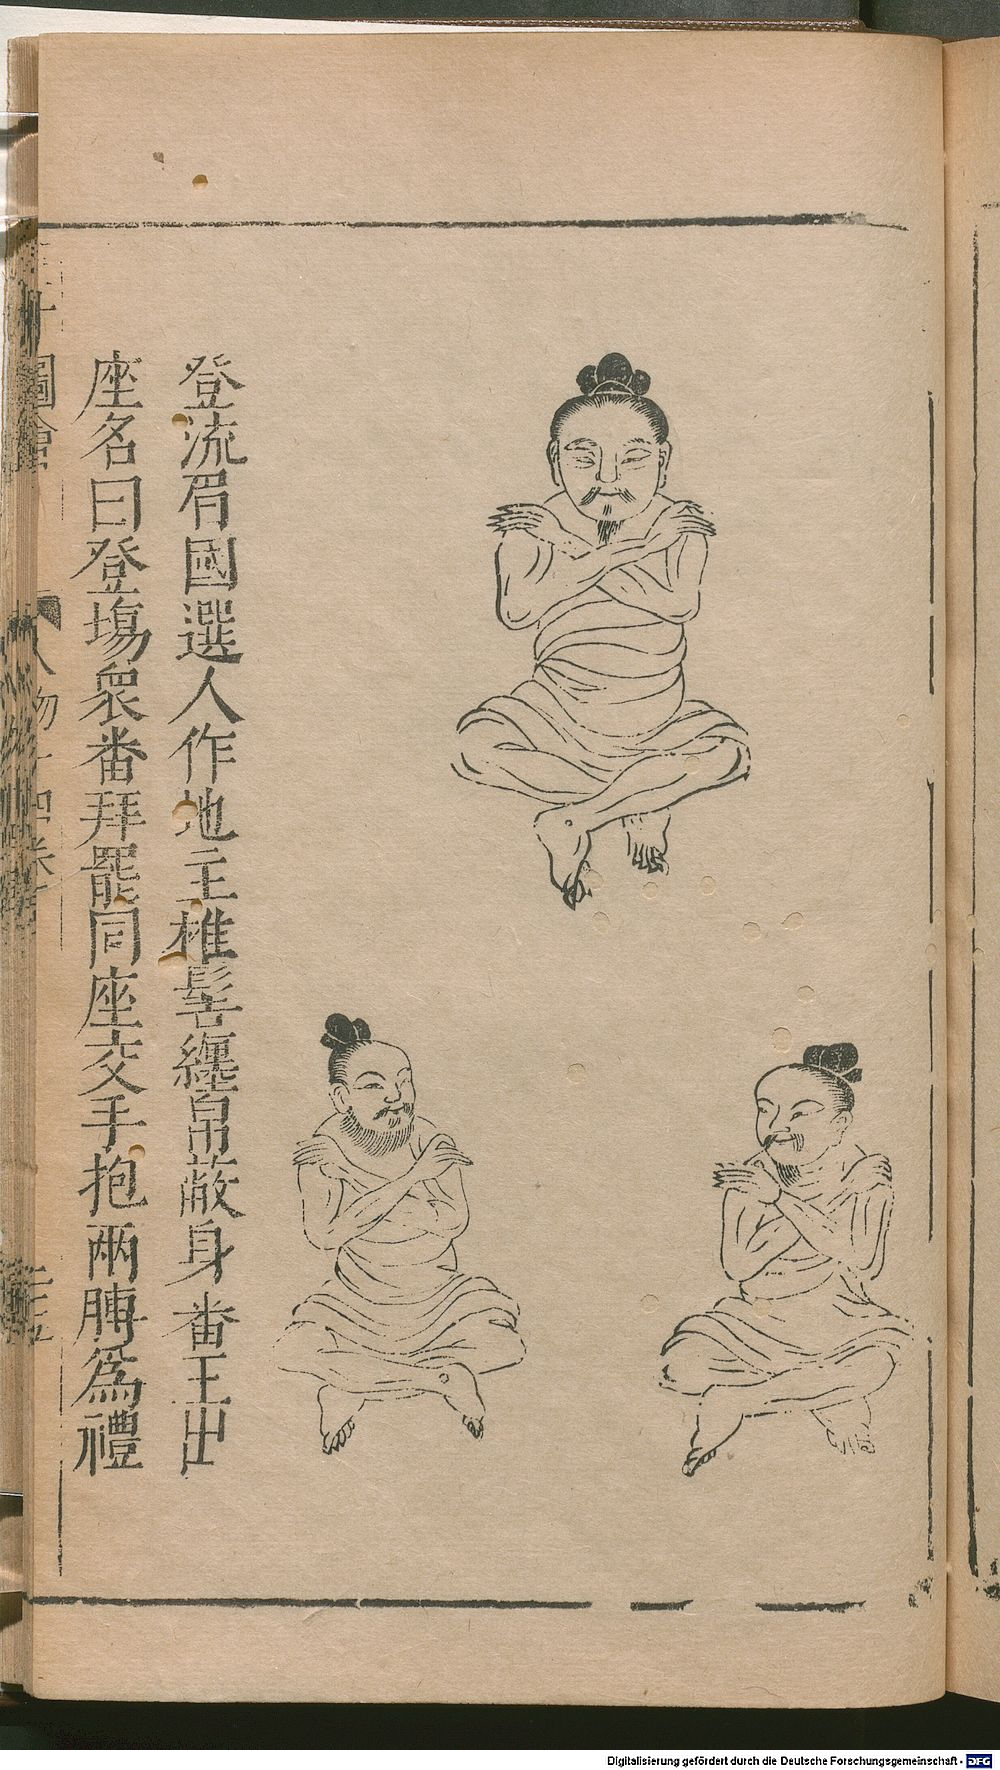 登流眉國選人作地主椎髻纏帛蔽身番王出
座名曰登塲衆番拜罷同座交手抱兩膊為禮
圖會
人物十四卷
Digitalisierung gefördert durch die Deutsche Forschungsgemeinschaft - DFG